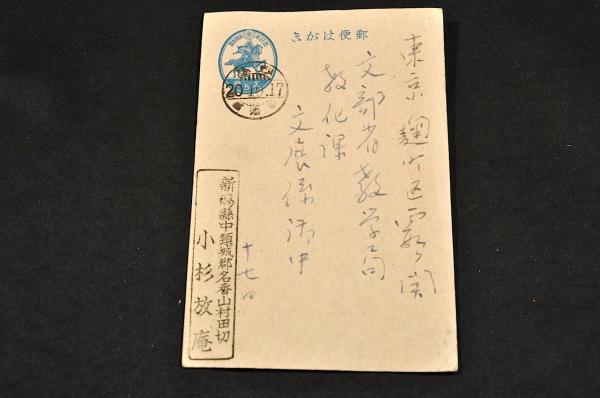 きがは便郵
20.10.17
東京麹町区霞ヶ関
文部省教学局
教化課
文展係御中
十七日
新潟縣中頸城郡名香山村田切
小杉放庵